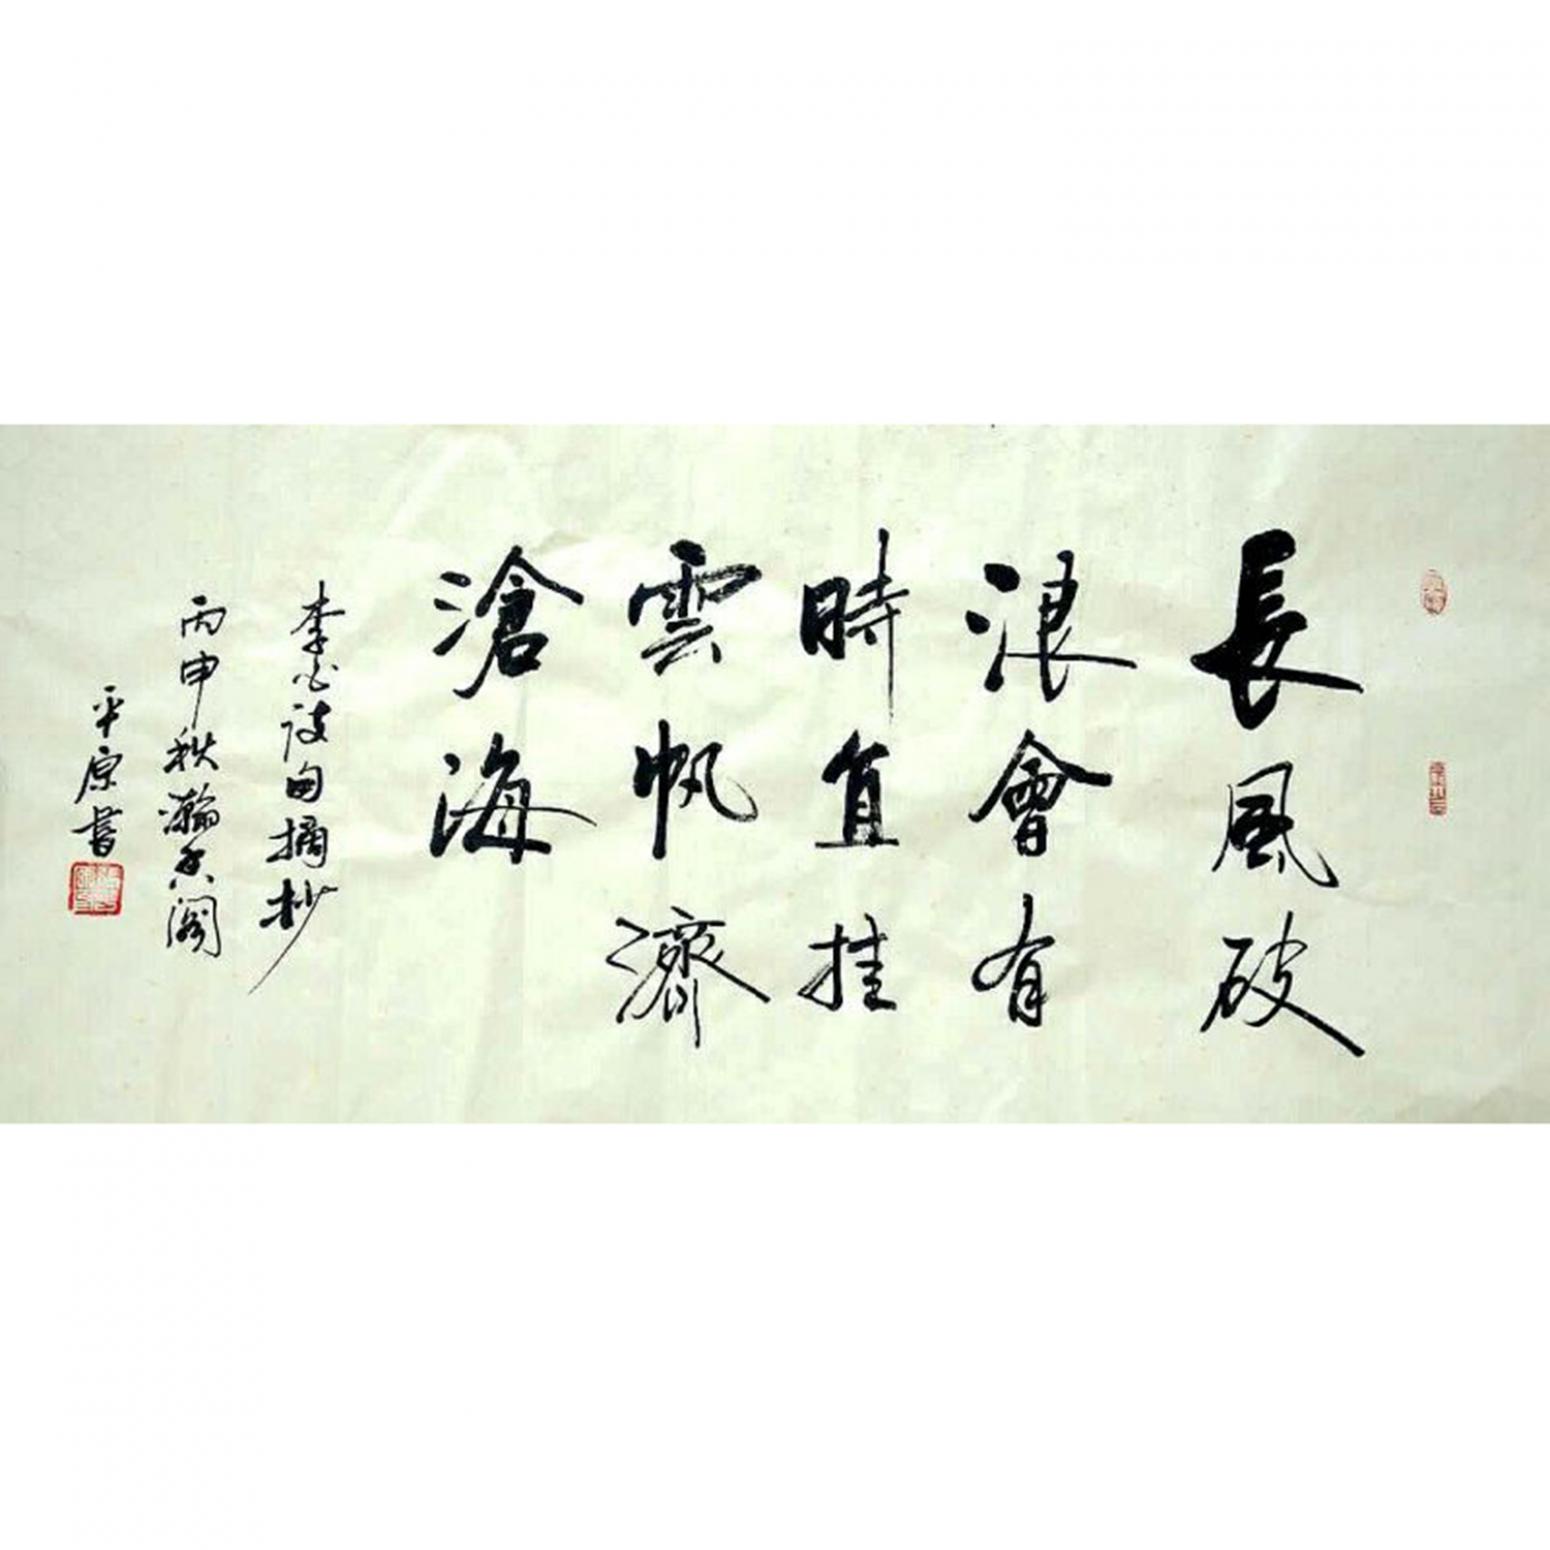 長風破
浪會有
時直挂
雲帆濟
滄海
李白詩句摘抄
丙申秋瀚香閣
平原書